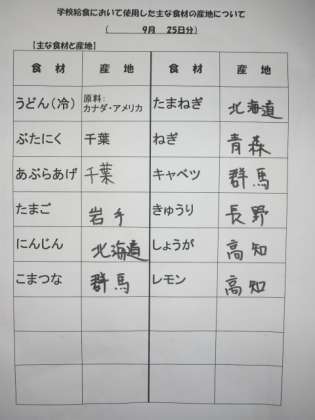 学校給食において使用した主な食材の産地について
( 9月 25日分)
【主な食材と産地】
食 材 産 地 食 材 産 地
うどん(冷) 原料: カナダ・アメリカ たまねぎ 北海道
ぶたにく 千葉 ねぎ 青森
あぶらあげ 千葉 キャベツ 群馬
たまご 岩手 きゅうり 長野
にんじん 北海道 しょうが 高知
こまつな 群馬 レモン 高知